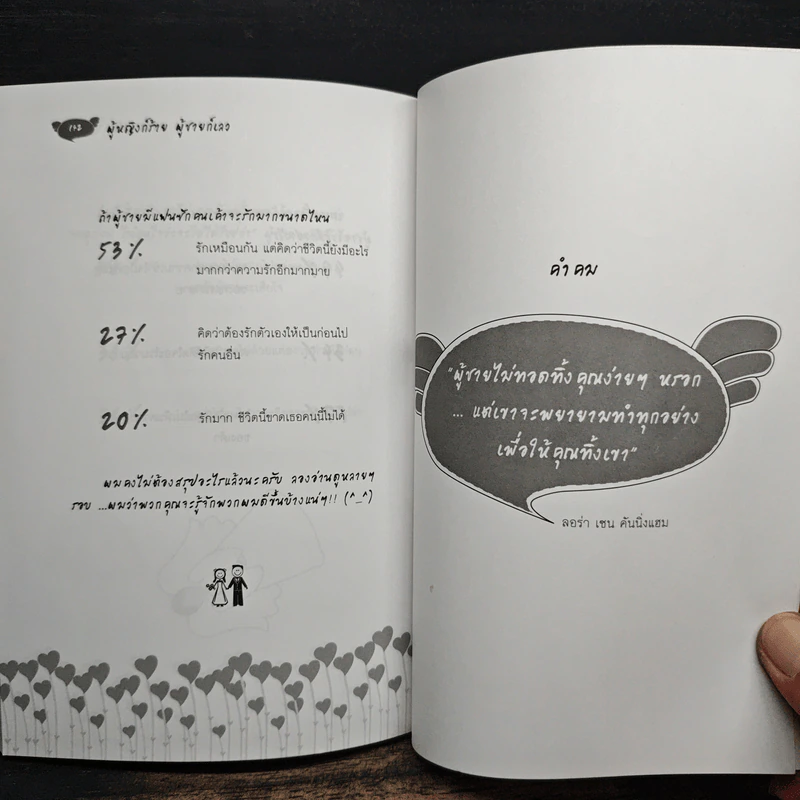 ๑๖๒ ผู้หญิงก็ร้าย ผู้ชายก็เลว
ถ้าผู้ชายมีแฟนซักคนเค้าจะรักมากขนาดไหน
53% รักเหมือนกัน แต่คิดว่าชีวิตนี้ยังมีอะไร
มากกว่าความรักอีกมากมาย
27% คิดว่าต้องรักตัวเองให้เป็นก่อนไป
รักคนอื่น
20% รักมาก ชีวิตนี้ขาดเธอคนนี้ไม่ได้
ผมคงไม่ต้องสรุปอะไรแล้วนะครับ ลองอ่านดูหลายๆ
รอบ ...ผมว่าพวกคุณจะรู้จักพวกผมดีขึ้นบ้างแน่ๆ!! (^_^)
คำคม
"ผู้ชายไม่ทอดทิ้งคุณง่ายๆ หรอก
... แต่เขาจะพยายามทำทุกอย่าง
เพื่อให้คุณทิ้งเขา"
ลอร่า เซน คันนิ่งแฮม